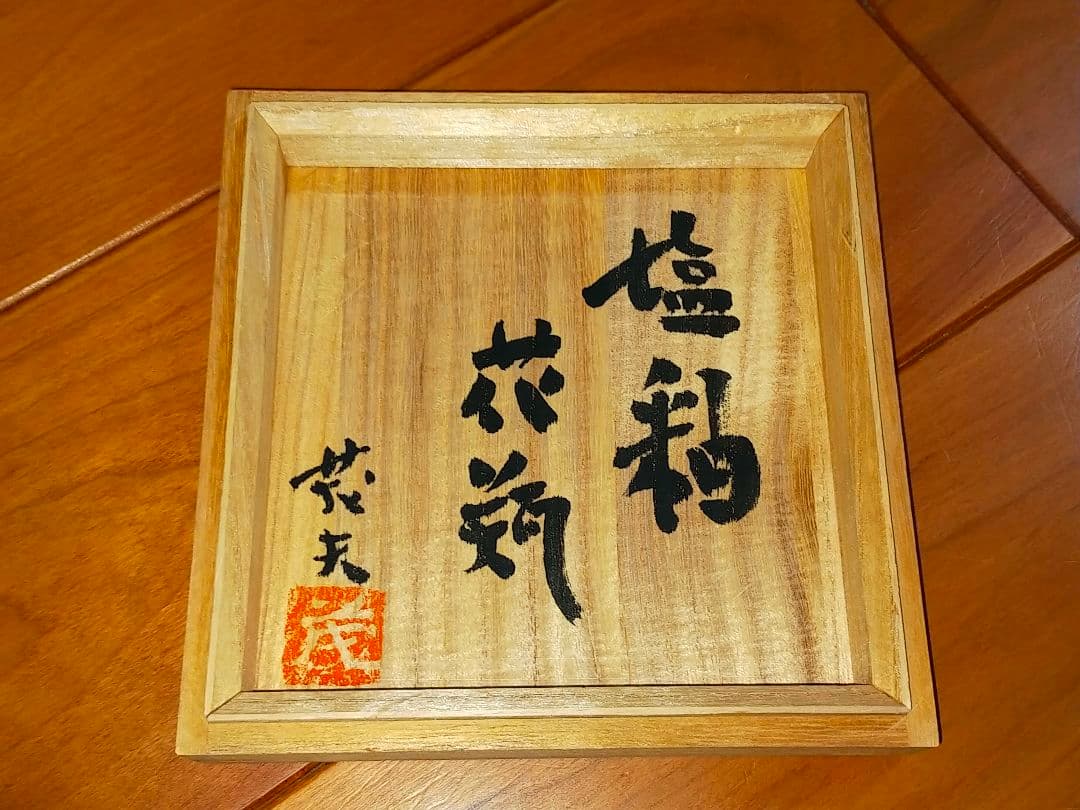 塩釉
花瓶
茂夫
茂